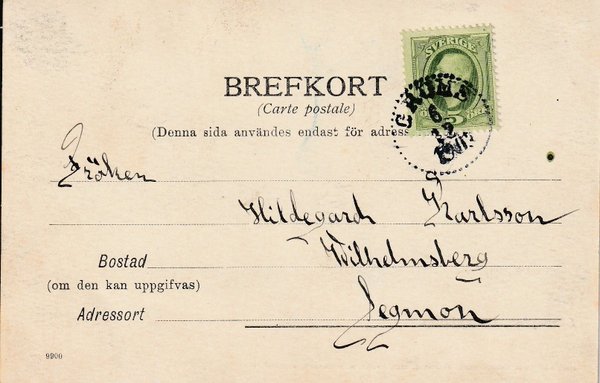 SVERIGE
BREFKORT
(Carte postale)
GRUMS
6
12
(Denna sida användes endast för adress
Fröken
Hildegard Karlsson
Bostad Wilhelmsberg
(om den kan uppgifvas)
Adressort Segmon
9900